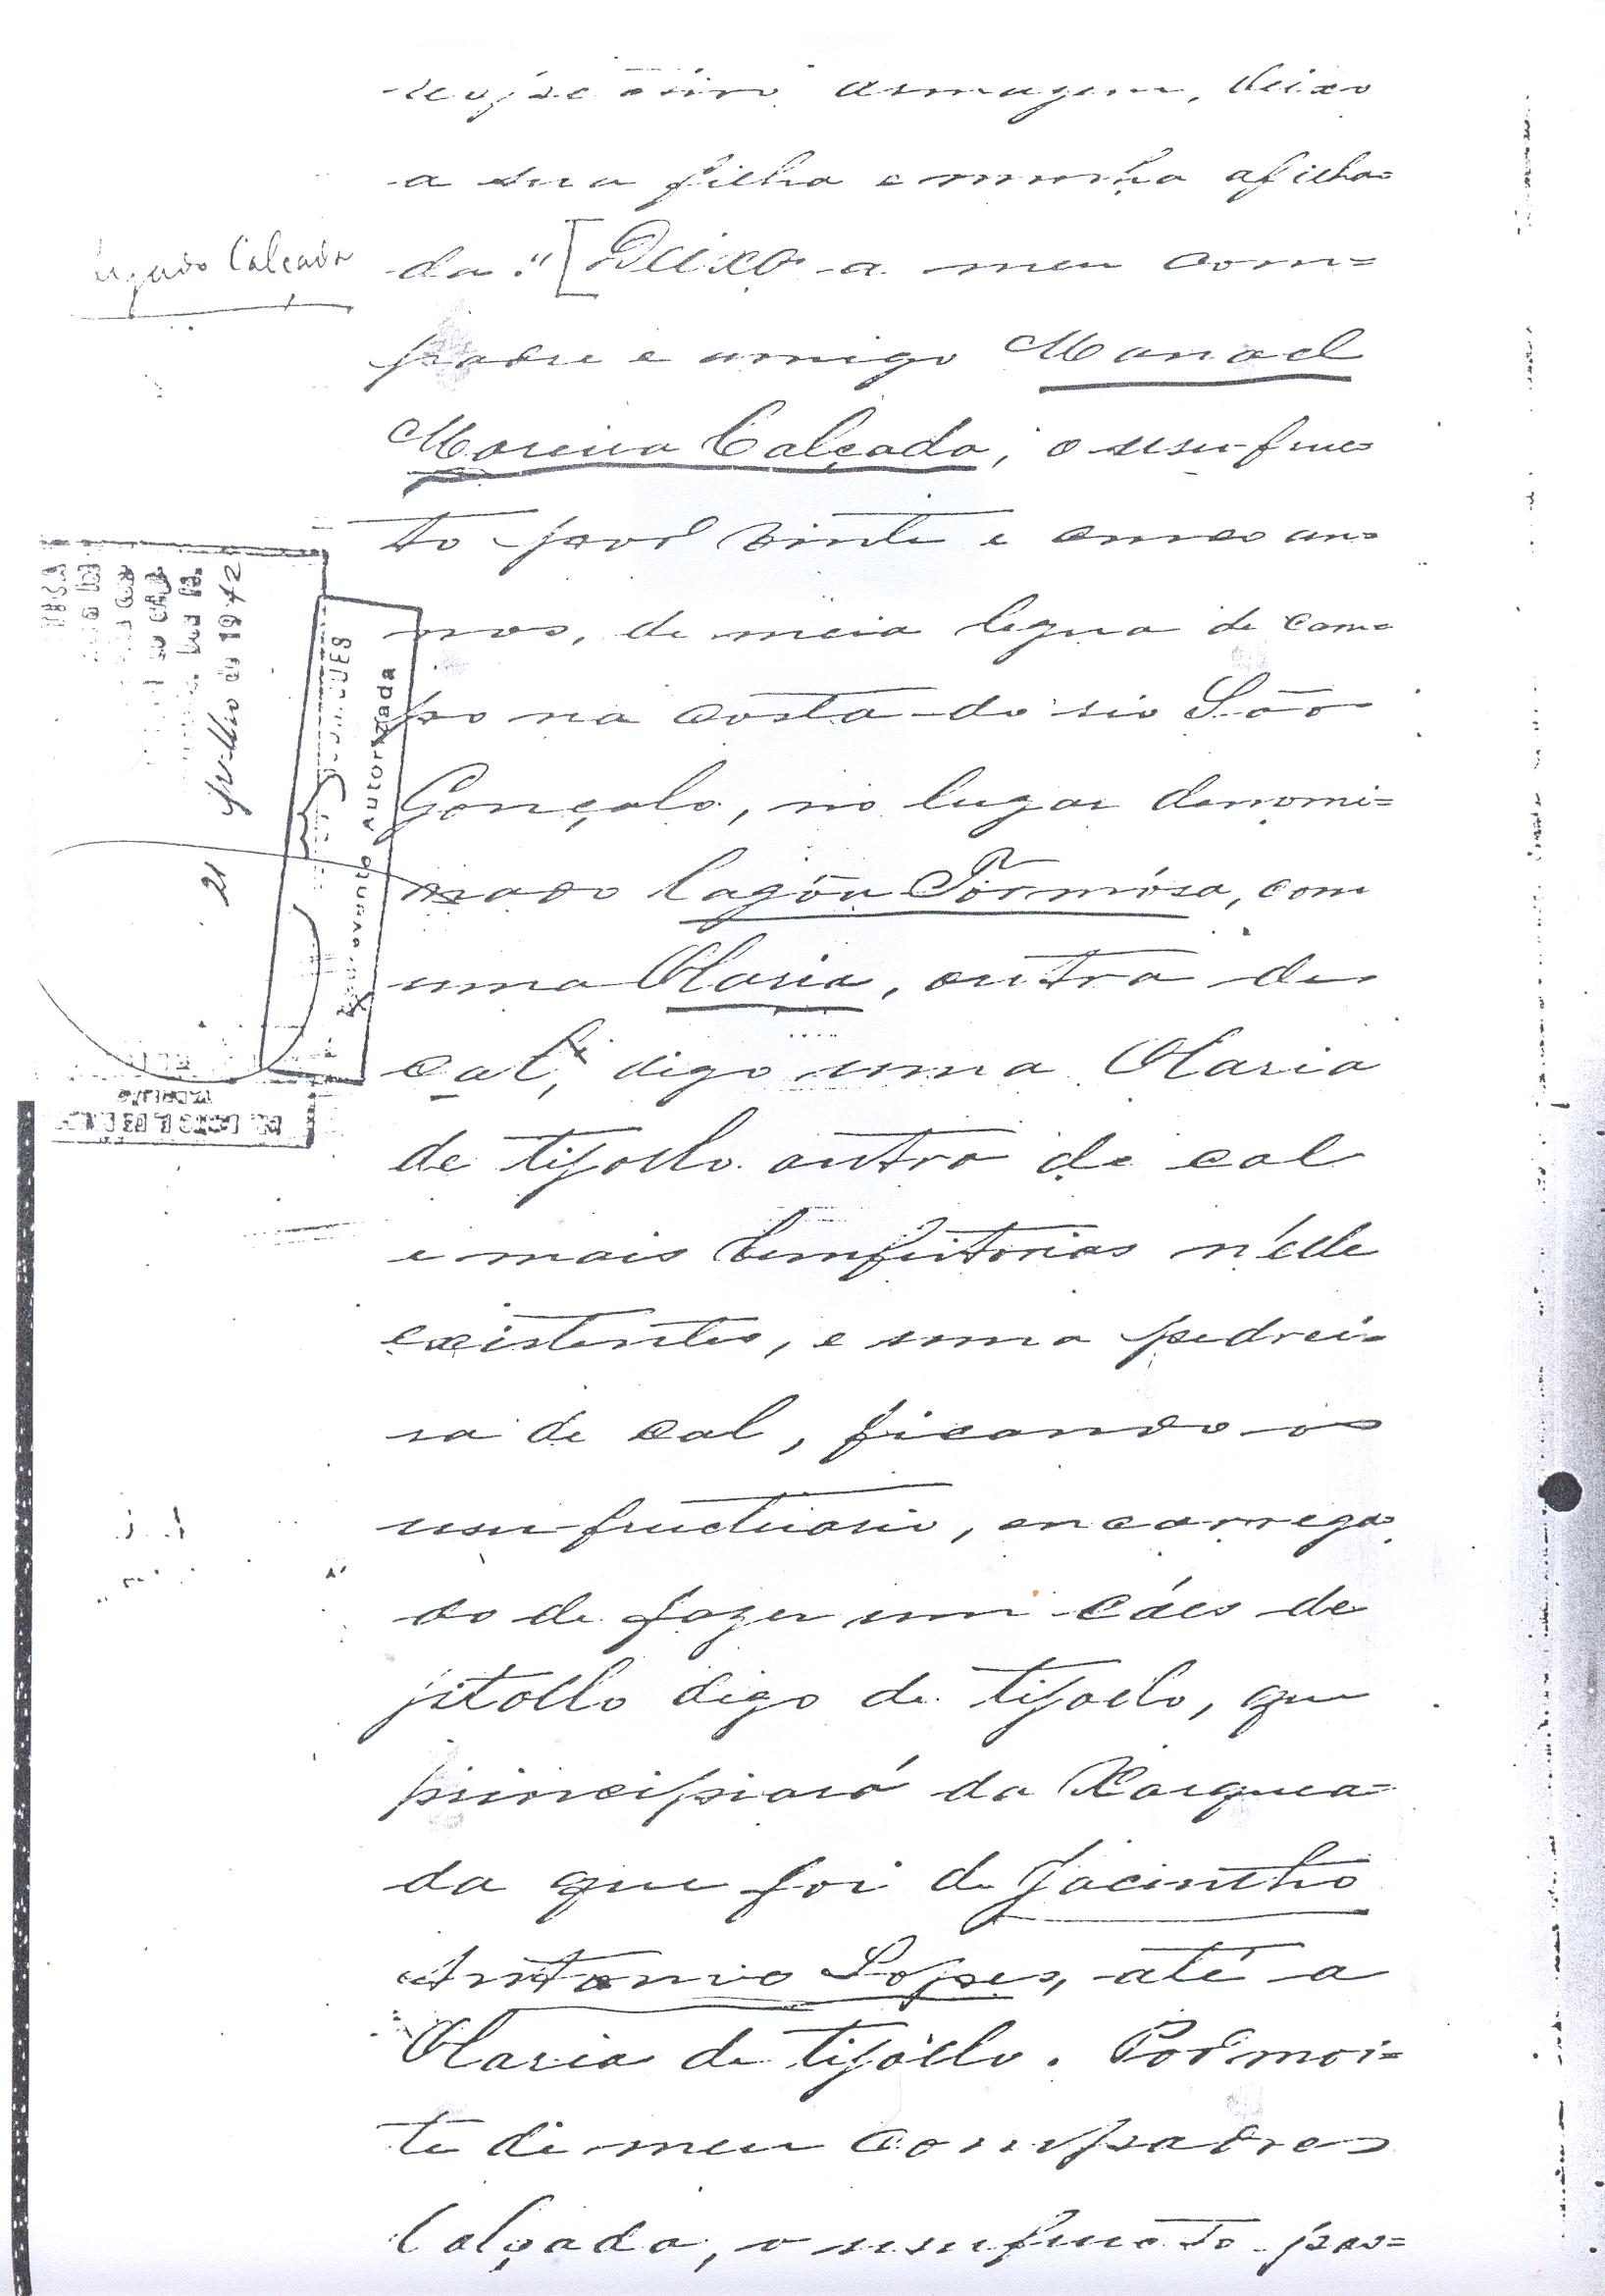 armagem, deixo
a sua filha e minha afilha=
da." [Deixo a meu com=
Legado Calçada
padre e amigo Manoel
Moreira Calçada, o usu-fruc=
to por vinte e cinco an=
nos, de meia legua de cam=
po na costa do rio São
Gonçalo, no lugar denomi=
nado Lagôa Formósa, com
uma Olaria, outra de
cal, digo uma Olaria
de tijollo outra de cal
e mais bemfeitorias n'elle
existentes, e uma pedrei=
ra de cal, ficando o
usufructuario, encarrega=
do de fazer um cáes de
jitollo digo de tijollo, que
principiará da Xarquea=
da que foi de Jacintho
Antonio Lopes, até a
Olaria de tijollo. Por mor=
te de meu compadre
Calçada, o usufructo pas=
21 Julho de 1972
Escrevente Autorizada